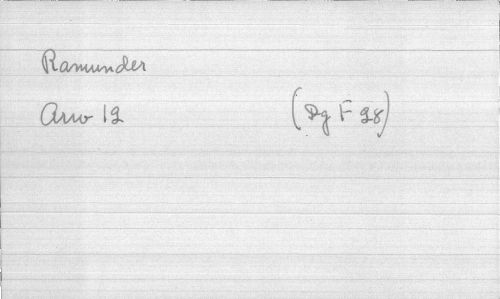 Ramunder
Arw 12 (Dg F 28)